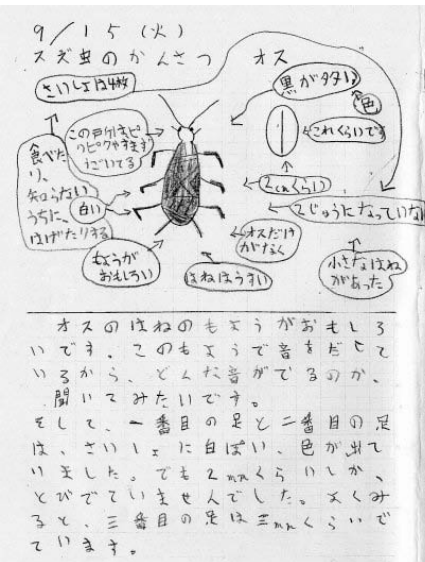 9/15(火)
スズ虫のかんさつ オス
さいしょは4枚
黒がタタい
色
これくらいです
この戸斤はピ
クピクやすまず
うごいてる
食べた
り、
知らない
うちに、
はげたりする
白い
2cmくらい
2じゅうになっていない
オスだけ
がなく
もようが
おもしろい
はねはうすい
小さなはね
があった
オスのはねのもようがおもしろ
いです。このもようで音をだして
いるから、どんな音がでるのか、
聞いてみたいです。
そして、一番目の足と二番目の足
は、さいしょに白ぽい、色が出て
いました。でも2mmくらいしか、
とびでていませんでした。よくみ
ると、三番目の足は三mmくらいで
ています。